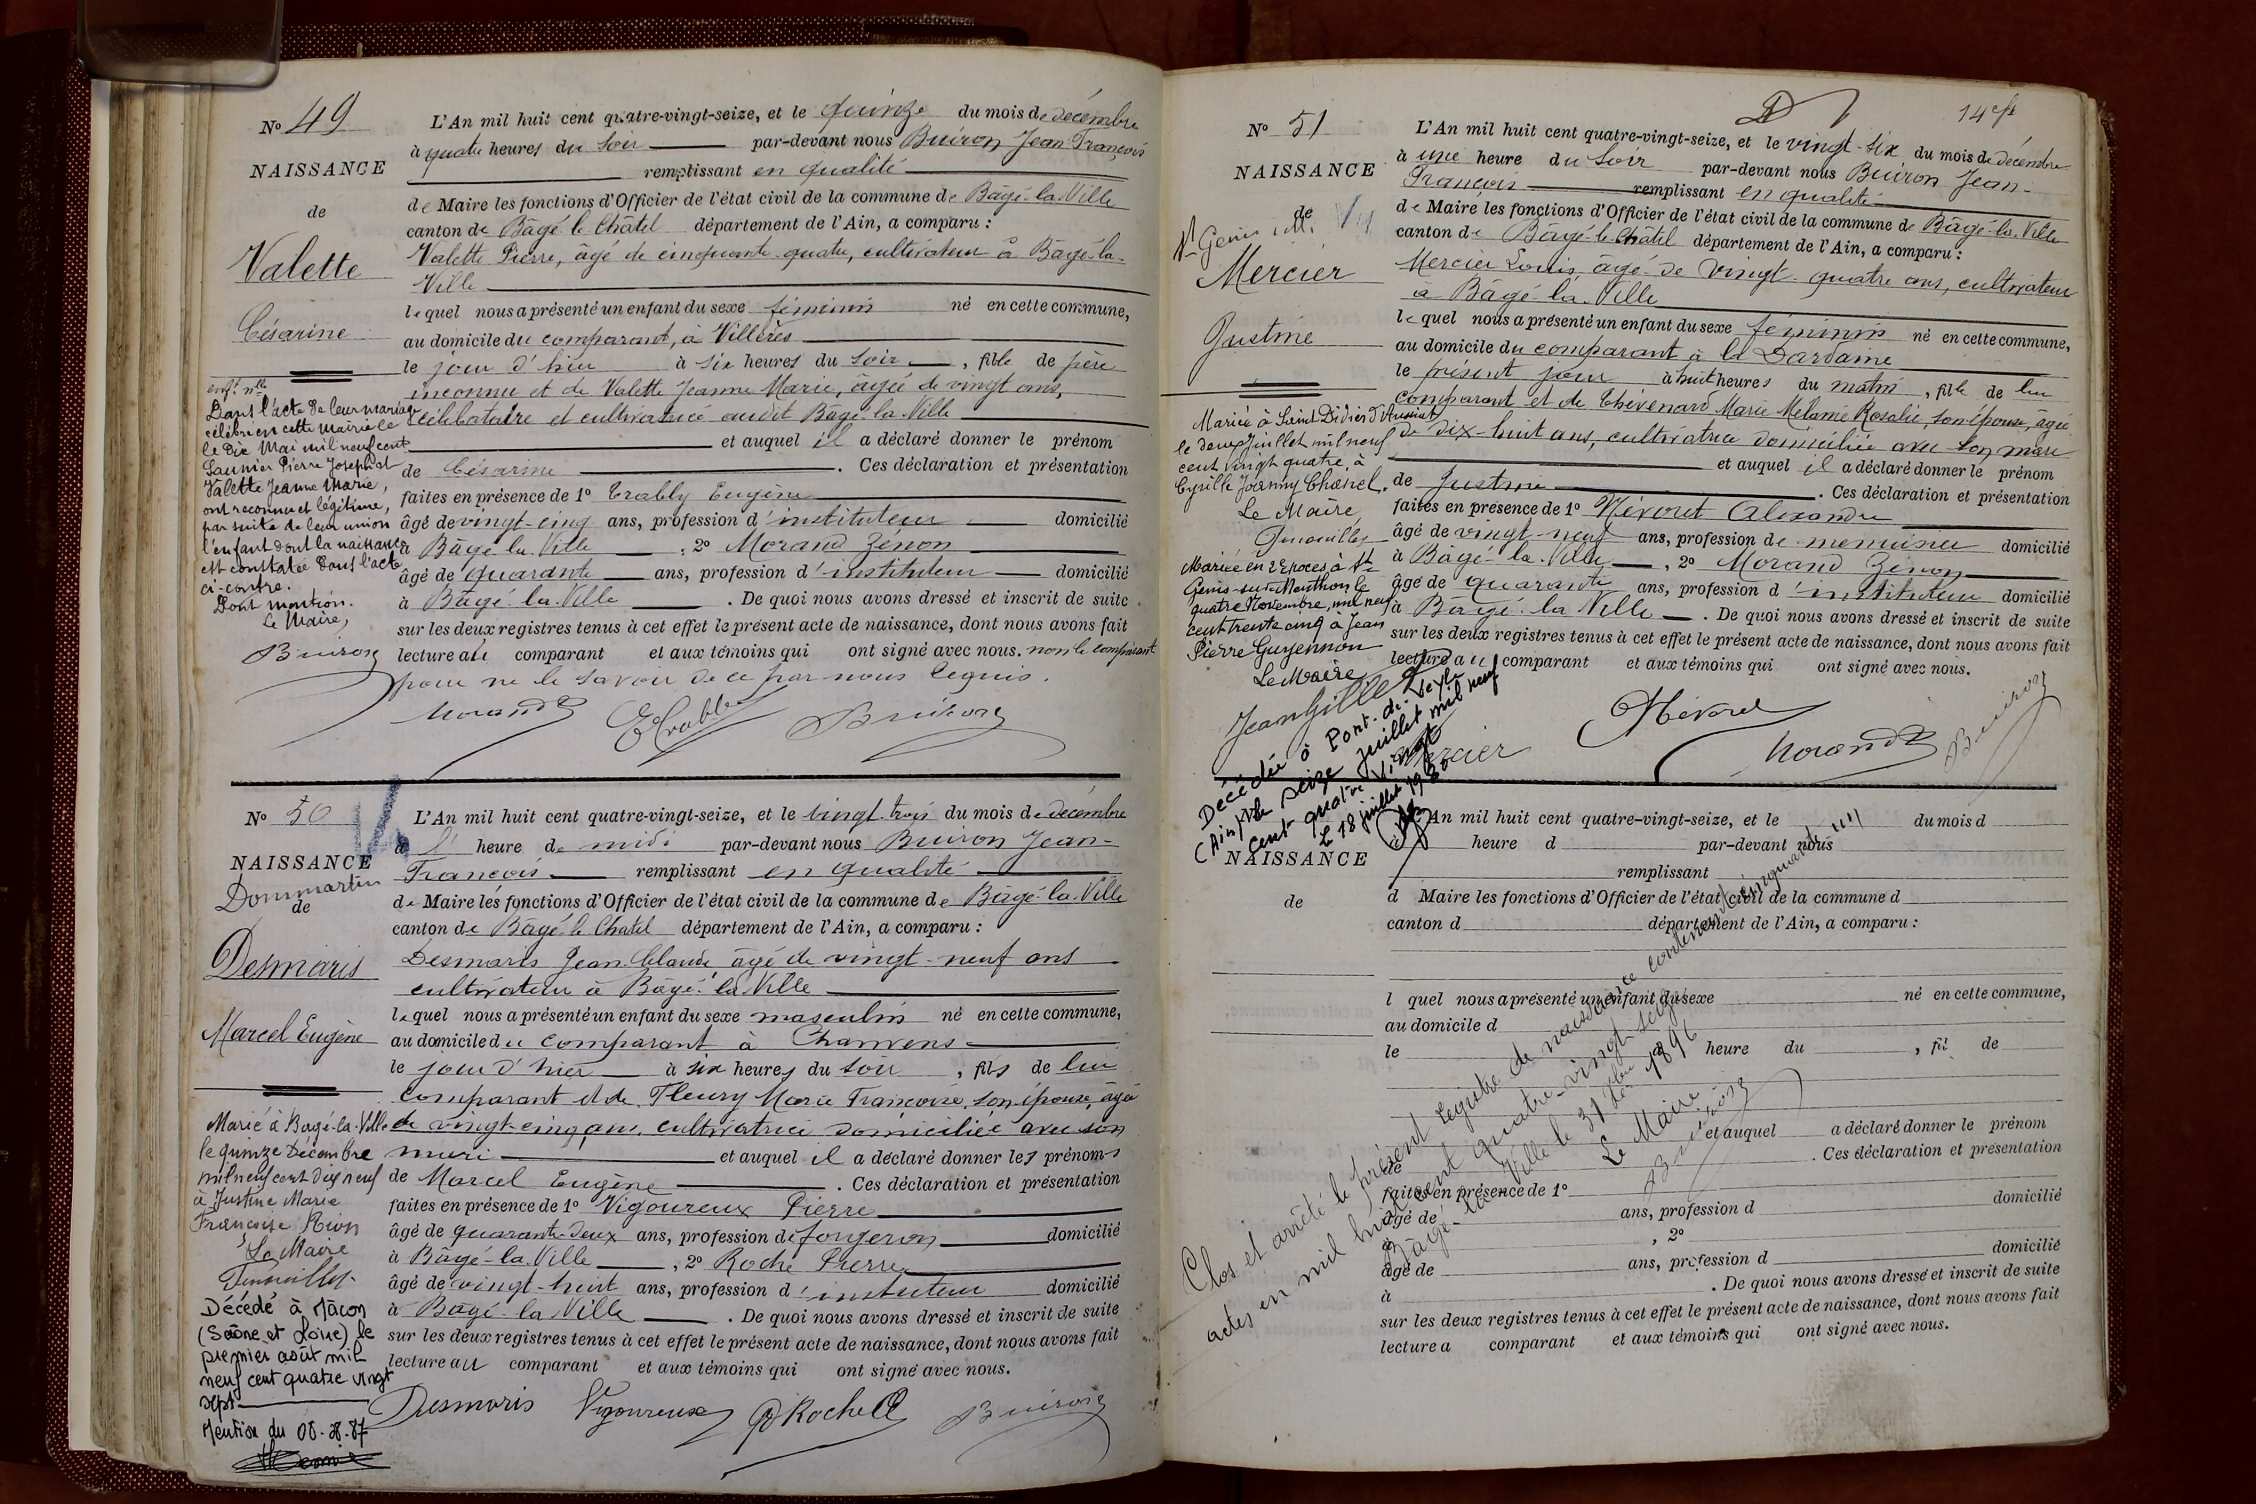 N° 49
NAISSANCE
de
Valette
Césarine
enf. n.lle
Dans l'acte de leur mariage
célébré en cette mairie le
le Dix Mai mil neuf cent
Saunier Pierre Joseph et
Valette Jeanne Marie,
ont reconnu et légitimé,
par suite de leur union
l'enfant dont la naissance
est constatée dans l'acte
ci-contre.
Dont mention.
Le Maire,
Buiron
L'An mil huit cent quatre-vingt-seize, et le quinze du mois de décembre
à quatre heures du soir par-devant nous Buiron Jean François
remplissant en qualité
de Maire les fonctions d'Officier de l'état civil de la commune de Bâgé-la-Ville
canton de Bâgé le Châtel département de l'Ain, a comparu :
Valette Pierre, âgé de cinquante-quatre, cultivateur à Bâgé-la-
Ville
lequel nous a présenté un enfant du sexe féminin né en cette commune,
au domicile du comparant, à Villères
le jour d'hier à six heures du soir, fille de père
inconnu et de Valette Jeanne Marie, âgée de vingt ans,
célibataire et cultivatrice audit Bâgé-la-Ville
et auquel il a déclaré donner le prénom
de Césarine . Ces déclaration et présentation
faites en présence de 1° Trably Eugène
âgé de vingt-cinq ans, profession d'instituteur domicilié
à Bâgé-la-Ville , 2° Morand Zénon
âgé de quarante ans, profession d'instituteur domicilié
à Bâgé-la-Ville . De quoi nous avons dressé et inscrit de suite
sur les deux registres tenus à cet effet le présent acte de naissance, dont nous avons fait
lecture au comparant et aux témoins qui ont signé avec nous. non le comparant
pour ne le savoir de ce par nous requis.
Morand E Trably Buiron
N° 50
NAISSANCE
Dommartin
de
Desmaris
Marcel Eugène
Marié à Bâgé-la-Ville
le quinze Décembre
mil neuf cent dix neuf
à Justine Marie
Françoise Rion
Le Maire
Décédé à Mâcon
(Saône et Loire) le
premier août mil
neuf cent quatre vingt
sept
Mention du 08-8-87
L'An mil huit cent quatre-vingt-seize, et le vingt-trois du mois de décembre
à l' heure de midi par-devant nous Buiron Jean-
François remplissant en qualité
de Maire les fonctions d'Officier de l'état civil de la commune de Bâgé-la-Ville
canton de Bâgé-le-Chatel département de l'Ain, a comparu :
Desmaris Jean Claude, âgé de vingt-neuf ans
cultivateur à Bâgé-la-Ville
lequel nous a présenté un enfant du sexe masculin né en cette commune,
au domicile du comparant à Chanvens
le jour d'hier à six heures du soir , fils de lui
comparant et de Fleury Marie Françoise, son épouse, âgée
de vingt-cinq ans, cultivatrice domiciliée avec son
mari et auquel il a déclaré donner les prénoms
de Marcel Eugène . Ces déclaration et présentation
faites en présence de 1° Vigoureux Pierre
âgé de quarante-deux ans, profession de forgeron domicilié
à Bâgé-la-Ville , 2° Roche Pierre
âgé de vingt-huit ans, profession d'instituteur domicilié
à Bâgé-la-Ville . De quoi nous avons dressé et inscrit de suite
sur les deux registres tenus à cet effet le présent acte de naissance, dont nous avons fait
lecture au comparant et aux témoins qui ont signé avec nous.
Desmaris Vigoureux P Roche Buiron
14
N° 51
NAISSANCE
de
St Genis
Mercier
Justine
Mariée à Saint Didier d'Aussiat
le deux Juillet mil neuf
cent vingt quatre, à
Cyrille Joanny Chanel.
Le Maire
Mariée en 2 Epoces à St
Genis-sur-Menthon le
quatre Novembre, mil neuf
cent trente cinq à Jean
Pierre Guyennon
Le Maire
Jean Gilles
Décédée à Pont-de-Veyle
(Ain) le seize juillet mil neuf
cent quatre vingt
Le 18 juillet 1980
L'An mil huit cent quatre-vingt-seize, et le vingt-six du mois de décembre
à une heure du soir par-devant nous Buiron Jean-
François remplissant en qualité
de Maire les fonctions d'Officier de l'état civil de la commune de Bâgé-la-Ville
canton de Bâgé-le-Châtel département de l'Ain, a comparu :
Mercier Louis, âgé de vingt-quatre ans, cultivateur
à Bâgé-la-Ville
lequel nous a présenté un enfant du sexe féminin né en cette commune,
au domicile du comparant à la Dardaine
le présent jour à huit heures du matin , fille de lui
comparant et de Thévenard Marie Mélanie Rosalie, son épouse, âgée
de dix-huit ans, cultivatrice domiciliée avec son mari
et auquel il a déclaré donner le prénom
de Justine . Ces déclaration et présentation
faites en présence de 1° Mévoret Alexandre
âgé de vingt-neuf ans, profession de menuisier domicilié
à Bâgé-la-Ville , 2° Morand Zénon
âgé de quarante ans, profession d'instituteur domicilié
à Bâgé-la-Ville . De quoi nous avons dressé et inscrit de suite
sur les deux registres tenus à cet effet le présent acte de naissance, dont nous avons fait
lecture au comparant et aux témoins qui ont signé avec nous.
Mercier Mévoret Morand Buiron
NAISSANCE
de
L'An mil huit cent quatre-vingt-seize, et le du mois d
à heure d par-devant nous
remplissant
d Maire les fonctions d'Officier de l'état civil de la commune d
canton d département de l'Ain, a comparu :
l quel nous a présenté un enfant du sexe né en cette commune,
au domicile d
le à heure du , fil de
et auquel a déclaré donner le prénom
de . Ces déclaration et présentation
faites en présence de 1°
âgé de ans, profession d domicilié
à , 2°
âgé de ans, profession d domicilié
à . De quoi nous avons dressé et inscrit de suite
sur les deux registres tenus à cet effet le présent acte de naissance, dont nous avons fait
lecture a comparant et aux témoins qui ont signé avec nous.
Clos et arrêté le présent registre de naissance contenant cinquante un
actes en mil huit cent quatre-vingt seize
Bâgé-la-Ville le 31 Xbre 1896
Le Maire
Buiron